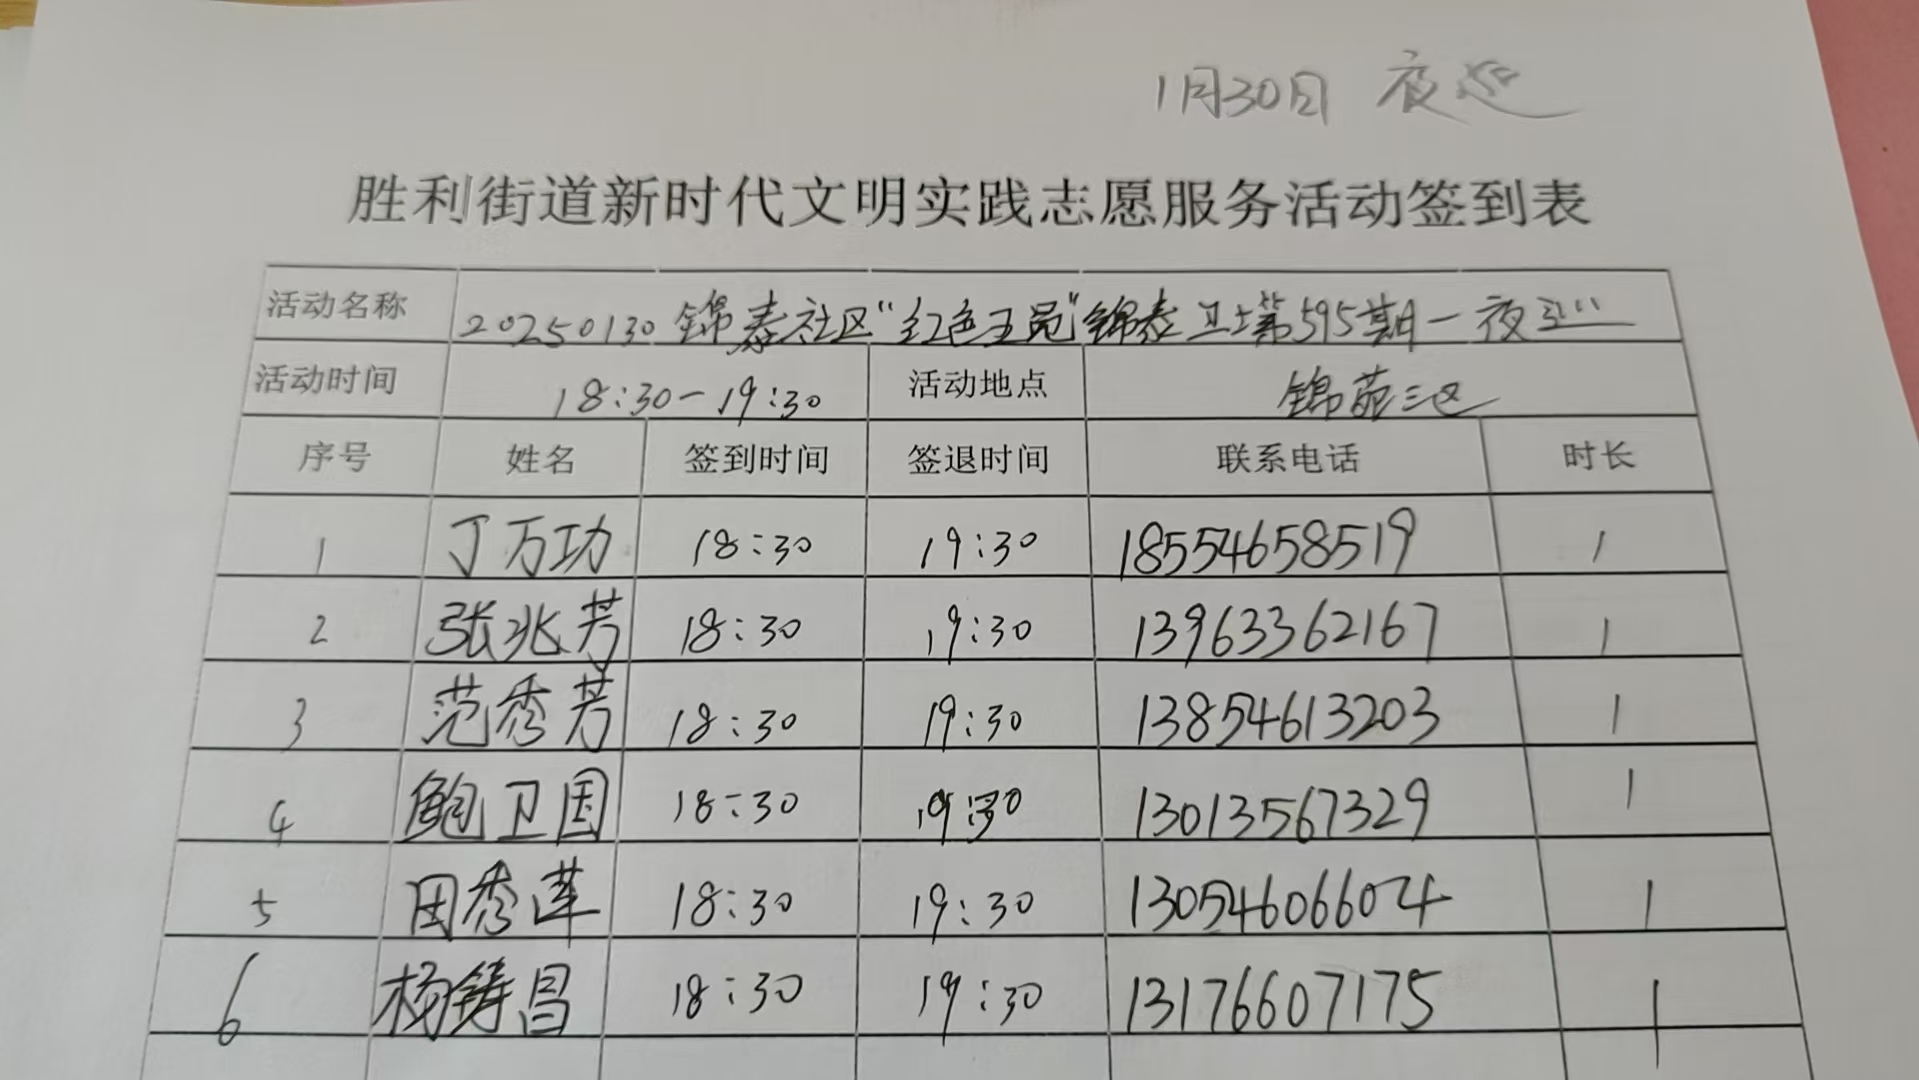 1月30日 夜巡
胜利街道新时代文明实践志愿服务活动签到表
活动名称 20250130锦泰社区“红色王冕”锦泰卫士第595期一夜巡
活动时间 18:30-19:30 活动地点 锦苑三区
序号 姓名 签到时间 签退时间 联系电话 时长
1 丁万功 18:30 19:30 18554658519 1
2 张兆芳 18:30 19:30 13963362167 1
3 范秀芳 18:30 19:30 13854613203 1
4 鲍卫国 18:30 19:30 13013567329 1
5 田秀莲 18:30 19:30 13054606604 1
6 杨铸昌 18:30 19:30 13176607175 1